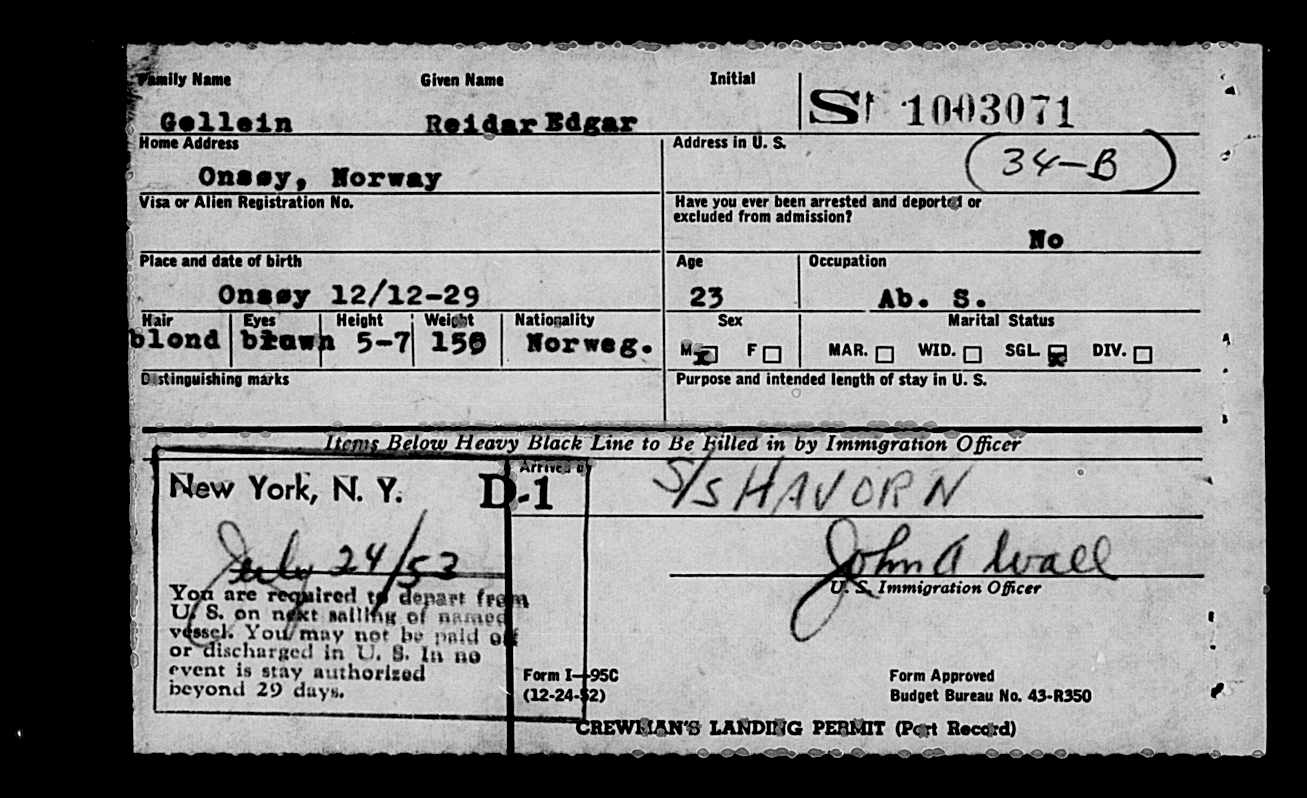 Family Name Given Name Initial
SI 1003071
Gellein Reidar Edgar
Home Address Address in U. S.
34-B
Onsøy, Norway
Visa or Alien Registration No. Have you ever been arrested and deported or
excluded from admission?
No
Place and date of birth Age Occupation
Onsøy 12/12-29 23 Ab. S.
Hair Eyes Height Weight Nationality Sex Marital Status
blond brown 5-7 150 Norweg. M F MAR. WID. SGL. DIV.
Distinguishing marks Purpose and intended length of stay in U. S.
Items Below Heavy Black Line to Be Filled in by Immigration Officer
Arrived on S/S HAVORN
New York, N. Y. D-1
July 24/53
John A Wall
U. S. Immigration Officer
You are required to depart from
U. S. on next sailing of named
vessel. You may not be paid off
or discharged in U. S. In no
event is stay authorized
beyond 29 days.
Form I-95C Form Approved
(12-24-52) Budget Bureau No. 43-R350
CREWMAN'S LANDING PERMIT (Port Record)